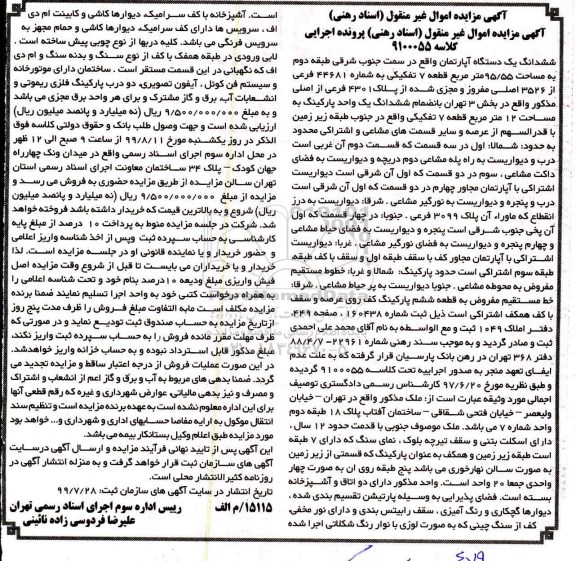 آگهی مزایده اموال غیر منقول (اسناد رهنی)
آگهی مزایده اموال غیر منقول (اسناد رهنی) پرونده اجرایی
کلاسه ۹۱۰۰۰۵۵
ششدانگ یک دستگاه آپارتمان واقع در سمت جنوب شرقی طبقه دوم
به مساحت ۹۵/۵۵متر مربع قطعه ۷ تفکیکی به شماره ۴۴۶۸۱ فرعی
از ۳۵۲۶ اصلی مفروز و مجزی شده از پلاک۴۳۰۱ فرعی از اصلی
مذکور واقع در بخش ۳ تهران بانضمام ششدانگ یک واحد پارکینگ به
مساحت ۱۲ متر مربع قطعه ۷ تفکیکی واقع در جنوب طبقه زیر زمین
با قدرالسهم از عرصه و سایر قسمت های مشاعی و اشتراکی محدود
به حدود: شمالا: اول در سه قسمت که قسمت دوم آن غربی است
درب و دیواریست به راه پله مشاعی دوم دریچه و دیواریست به فضای
داکت مشاعی . سوم در دو قسمت که اول آن شرقی است دیواریست
اشتراکی با آپارتمان مجاور چهارم در دو قسمت که اول آن شرقی است
درب و پنجره و دیواریست به نورگیر مشاعی . شرقا: دیواریست به درز
انقطاع که ماوراء آن پلاک ۳۰۹۹ فرعی . جنوبا: در چهار قسمت که اول
آن پخی جنوب شرقی است پنجره و دیواریست به فضای حیاط مشاعی
و چهارم پنجره و دیواریست به فضای نورگیر مشاعی . غربا: دیواریست
اشتراکی با آپارتمان مجاور کف با سقف طبقه اول و سقف با کف طبقه
طبقه سوم اشتراکی است حدود پارکینگ: شمالا و غربا: خطوط مستقیم
مفروض به محوطه مشاعی . جنوبا دیواریست به پر حیاط مشاعی . شرقا:
خط مستقیم مفروض به قطعه ششم پارکینگ کف روی زمین و سقف
با کف همکف اشتراکی است ذیل ثبت شماره ۱۶۰۴۳۸ . صفحه ۴۴۹ .
دفتر املاک ۱۰۴۹ ثبت و مع الواسطه به نام آقای محمد علی احمدی
ثبت و صادر گردید و به موجب سند رهنی شماره ۲۲۹۶۱-۸۸/۴/۷
دفتر ۳۶۸ تهران در رهن بانک پارسیان قرار گرفته که به علت عدم
ایفای تعهد منجر به صدور اجراییه تحت کلاسه ۹۱۰۰۰۵۵ گردیده
و طبق نظریه مورخ ۹۷/۶/۲۰ کارشناس رسمی دادگستری توصیف
اجمالی مورد وثیقه عبارت است از: ملک مذکور واقع در تهران – خیابان
ولیعصر – خیابان فتحی شقاقی – ساختمان آفتاب پلاک ۱۸ طبقه دوم
واحد شماره ۷ می باشد. ملک موصوف جنوبی با قدمت حدود ۱۲ سال ،
دارای اسکلت بتنی و سقف تیرچه بلوک ، نمای سنگ که دارای ۷ طبقه
است طبقه زیر زمین و همکف به عنوان پارکینگ که قسمتی از زیر زمین
به صورت سالن نهارخوری می باشد پنج طبقه روی آن به صورت چهار
واحدی جمعا ۲۰ واحد است. واحد مذکور دارای دو اتاق و آشپزخانه
بسته است. فضای پذیرایی به وسیله پارتیشن تقسیم بندی شده ،
دیوارها گچکاری و رنگ آمیزی ، سقف رابیتس بندی و دارای نور مخفی.
کف از سنگ چینی که به صورت لوزی با نوار رنگ شکلاتی اجرا شده
است. آشپزخانه با کف سرامیک، دیوارها کاشی و کابینت ام دی
اف ، سرویس ها دارای کف سرامیک، دیوارها کاشی و حمام مجهز به
سرویس فرنگی می باشد. کلیه دربها از نوع چوبی پیش ساخته است .
لابی ورودی در طبقه همکف با کف از نوع سنگ و بدنه سنگ و ام دی
اف که نگهبانی در این قسمت مستقر است . ساختمان دارای موتورخانه
و سیستم فن کوئل ، آیفون تصویری، دو درب پارکینگ فلزی ریموتی و
انشعابات آب، برق و گاز مشترک و برای هر واحد برق مجزی می باشد
و به مبلغ ۹/۵۰۰/۰۰۰/۰۰۰ ریال (نه میلیارد و پانصد میلیون ریال)
ارزیابی شده است و جهت وصول طلب بانک و حقوق دولتی کلاسه فوق
الذکر در روز یکشنبه مورخ ۹۹/۸/۱۱ از ساعت ۹ صبح الی ۱۲ ظهر
در محل اداره سوم اجرای اسناد رسمی واقع در میدان ونک چهارراه
جهان کودک – پلاک ۳۴ ساختمان معاونت اجرای اسناد رسمی استان
تهران سالن مزایده از طریق مزایده حضوری به فروش می رسد و
مزایده از مبلغ ۹/۵۰۰/۰۰۰/۰۰۰ ریال (نه میلیارد و پانصد میلیون
ریال) شروع و به بالاترین قیمت که خریدار داشته باشد فروخته خواهد
شد. شرکت در جلسه مزایده منوط به پرداخت ۱۰ درصد از مبلغ پایه
کارشناسی به حساب سپرده ثبت وپس از اخذ شناسه واریز اعلامی
و حضور خریدار و یا نماینده قانونی او در جلسه مزایده است. لذا
خریدار و یا خریداران می بایست تا قبل از شروع وقت مزایده اصل
فیش واریزی مبلغ ودیعه ۱۰درصد بنام خود و تحت شناسه اعلامی را
به همراه درخواست کتبی خود به واحد اجرا تسلیم نمایند ضمنا برنده
مزایده مکلف است مابه التفاوت مبلغ فروش را ظرف مدت پنج روز
ازتاریخ مزایده به حساب صندوق ثبت تودیع نماید و در صورتی که
ظرف مهلت مقرر مانده فروش را به حساب سپرده ثبت واریز نکند،
مبلغ مذکور قابل استرداد نبوده و به حساب خزانه واریز خواهدشد.
در این صورت عملیات فروش از درجه اعتبار ساقط و مزایده تجدید می
گردد. ضمنا بدهی های مربوط به آب و برق و گاز اعم از انشعاب و اشتراک
و مصرف و نیز بدهی مالیاتی، عوارض شهرداری و غیره که رقم قطعی آنها
برای این اداره معلوم نشده است به عهده برنده مزایده است و تنظیم سند
انتقال موکول به ارایه مفاصا حسابهای اداری و شهرداری و... خواهد بود
مورد مزایده طبق اعلام وکیل بستانکار بیمه می باشد.
این آگهی پس از تایید نهائی فرآیند مزایده و ارسال آگهی درسایت
آگهی های سازمان ثبت قرار خواهد گرفت و به منزله انتشار آگهی در
روزنامه کثیرالانتشار محلی است.
تاریخ انتشار در سایت آگهی های سازمان ثبت: ۹۹/۷/۲۸
۱۵۱۱۵/م الف رییس اداره سوم اجرای اسناد رسمی تهران
علیرضا فردوسی زاده نائینی